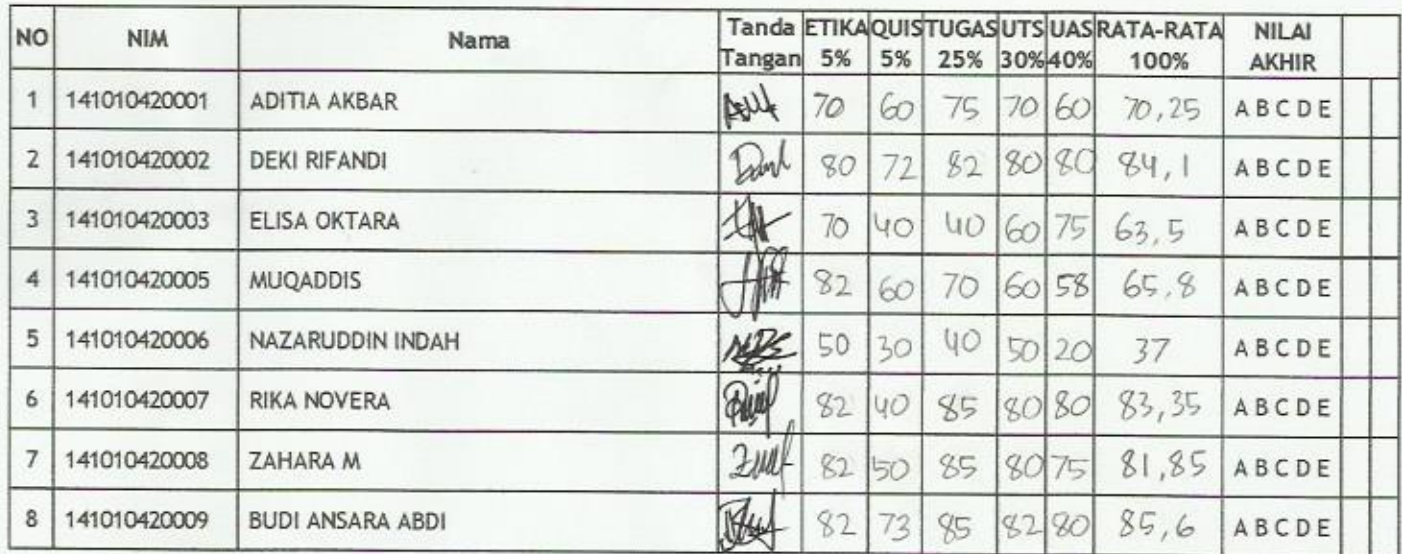 NO NIM Nama Tanda Tangan ETIKA 5% QUIS 5% TUGAS 25% UTS 30% UAS 40% RATA-RATA 100% NILAI AKHIR
1 141010420001 ADITIA AKBAR 70 60 75 70 60 70,25 A B C D E
2 141010420002 DEKI RIFANDI 80 72 82 80 80 84,1 A B C D E
3 141010420003 ELISA OKTARA 70 40 40 60 75 63,5 A B C D E
4 141010420005 MUQADDIS 82 60 70 60 58 65,8 A B C D E
5 141010420006 NAZARUDDIN INDAH 50 30 40 50 20 37 A B C D E
6 141010420007 RIKA NOVERA 82 40 85 80 80 83,35 A B C D E
7 141010420008 ZAHARA M 82 50 85 80 75 81,85 A B C D E
8 141010420009 BUDI ANSARA ABDI 82 73 85 82 80 85,6 A B C D E